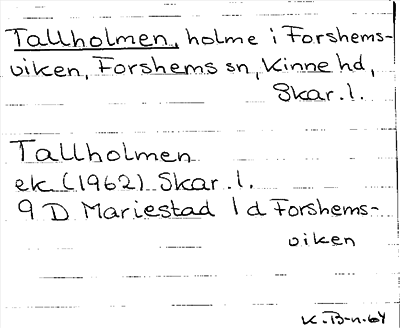 Tallholmen, holme i Forshems-
viken, Forshems sn, Kinne hd,
Skar. l.
Tallholmen
ek. (1962) Skar. l.
9 D Mariestad 1 d Forshems-
viken
K. B-n. 64